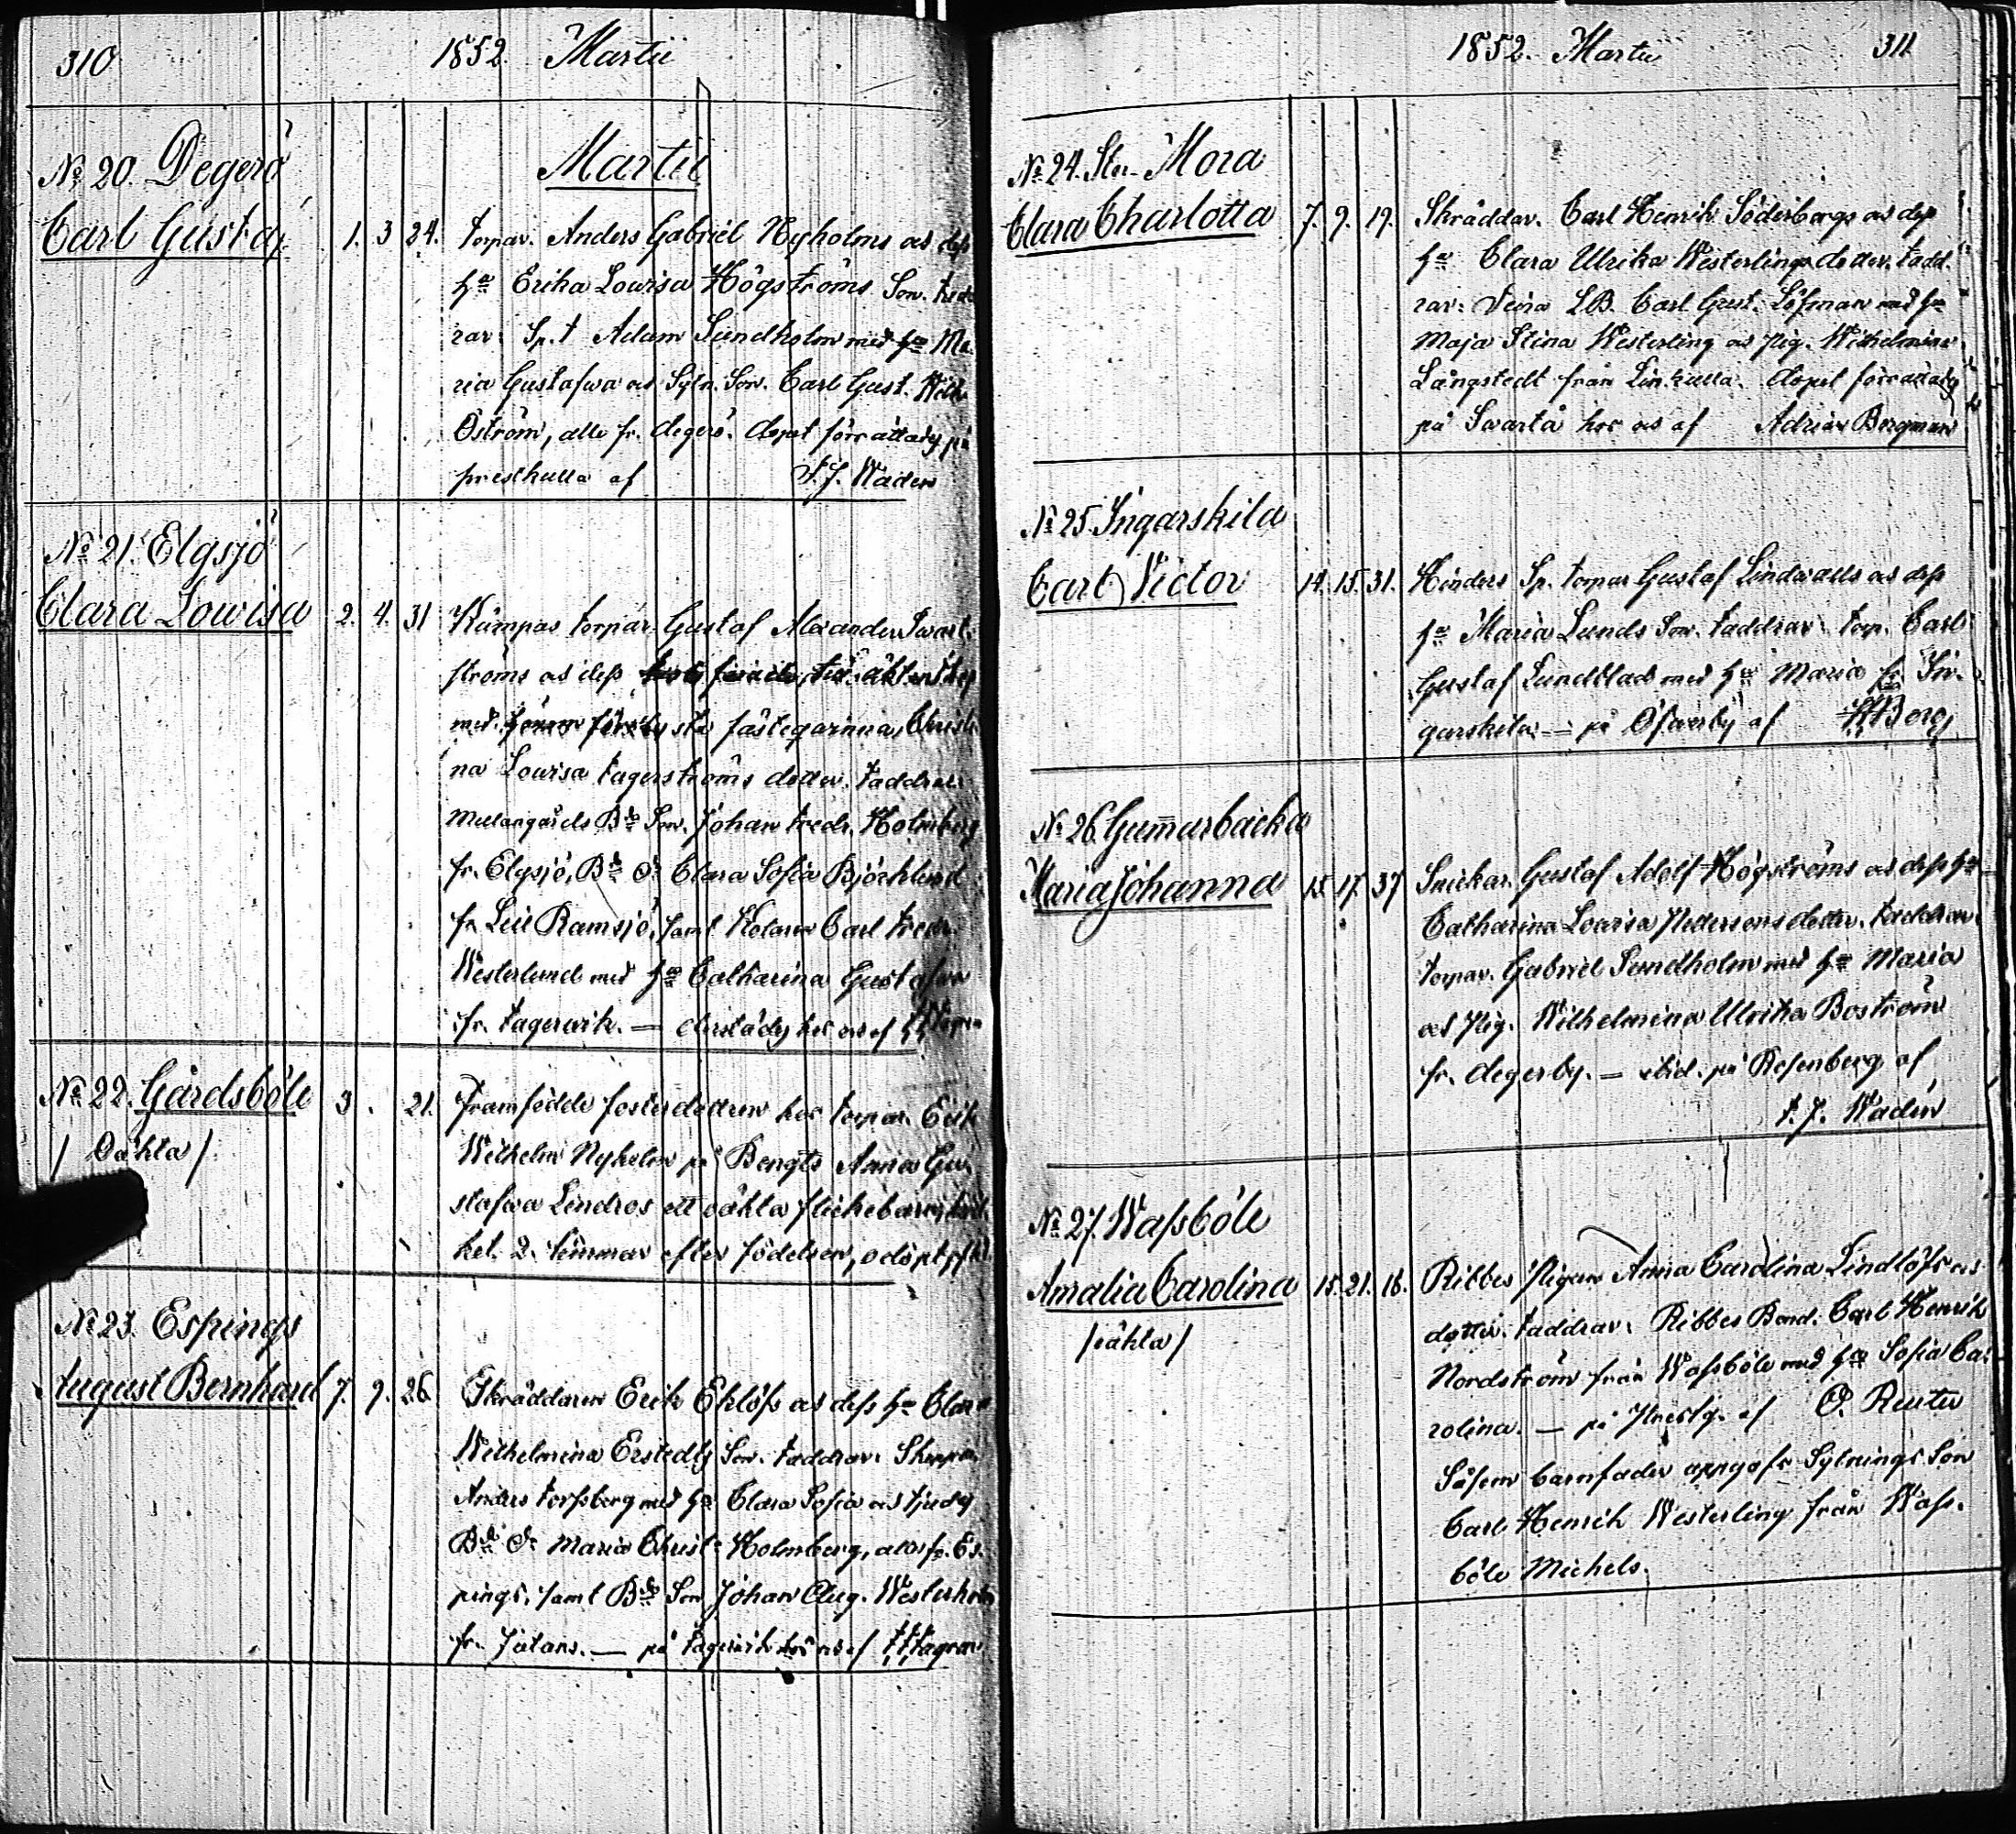 310
1852. Martii
Martii
No 20. Degerö
Carl Gustaf 1. 3 24. Torpar. Anders Gabriel Nyholms as dess
hu Erika Lowisa Högströms Son. Fadd
rar: Sp.t Adam Sundholm med hu Ma.
ria Gustafwa as Sytn. Son. Carl Gust. Wilh.
Öström, alla fr. degerö. döpt förrättady på
prestkulla af F. J. Wadén
No 21. Elgsjö
Clara Lowisa 2. 4. 31 Kümpas torpar Gustaf Alexander Swart
ströms as dess
med fästeqarinna, Christi
na Lowisa Fagerströms dotter. Faddrar:
Mellangårds Bde Son. Johan Fredr. Holmberg
fr. Elgsjö, Bde dr Clara Sofia Björklund
fr Leil Ramsjö, samt Kolaren Carl Fredr.
Westerlund med hu Catharina Gustafva
fr. Fagerwik. — hos as af
No 22. Gårdsböle 3. 21. Framfödde fosterdottren hos torpar. Erik
/ Oäkta / Wilhelm Nyholm på Bengts Anna Gu
stafwa Lindros ett oäkta flickebarn,
ket 2. timmar efter födelsen, odöpt
No 23. Espings
August Bernhard 7. 9. 26. Skräddaren Erik Eklöfs as dess hu Clara
Wilhelmina Erstedts Son. Faddrar:
Anders Forssberg med hu Clara Sofia as tjendg
Bde dr Maria Christ: Holmberg, alla fr. Es.
pings, samt Bde Son Johan Aug. Westerholm
fr. Jutans. — på Fagerwik hos as af
1852. Martii 311
No 24. Stor-Mora
Clara Charlotta 7. 9. 19. Skräddar. Carl Henrik Söderbergs as dess
hu Clara Ulrika Westerlings dotter. Fadd.
rar: Deira LB. Carl Gust. Löfman med hu
Maja Stina Westerling as pig. Wilhelmina
Långstedt från Linkulla. döpet förrättady
på Swartå hos as af Adrian Bergman
No 25. Ingarskila
Carl Victor 14. 15. 31. Hinders Sp. torpar Gustaf Lindwalls as dess
hu Maria Lunds Son. Faddrar: torp. Carl
Gustaf Lundblad med hu Maria fr. In.
garskila. — på Öfwerby af Berg
No 26. Gumarbacka
Maria Johanna 15. 17. 37 Snickar. Gustaf Adolf Högströms as dess hu
Catharina Lowisa Pedersons dotter. Faddrar
torpar. Gabriel Sundholm med hu Maria
as pig. Wilhelmina Ulrika Boström
fr. degerby. — ibid. på Rosenberg af
F. J. Wadén
No 27. Wassböle
Amalia Carolina 15. 21. 18. Ribbes pigan Anna Carolina Lindlöfs as
/ oäkta / dotter. Faddrar: Ribbes Bond. Carl Henrik
Nordström från Wassböle med hu Sofia Ca.
rolina. — på Prestg. af O. Reuter
Såsom barnfader uppgafs Sytnings Son
Carl Henrik Westerling från Wass.
böle Michels.